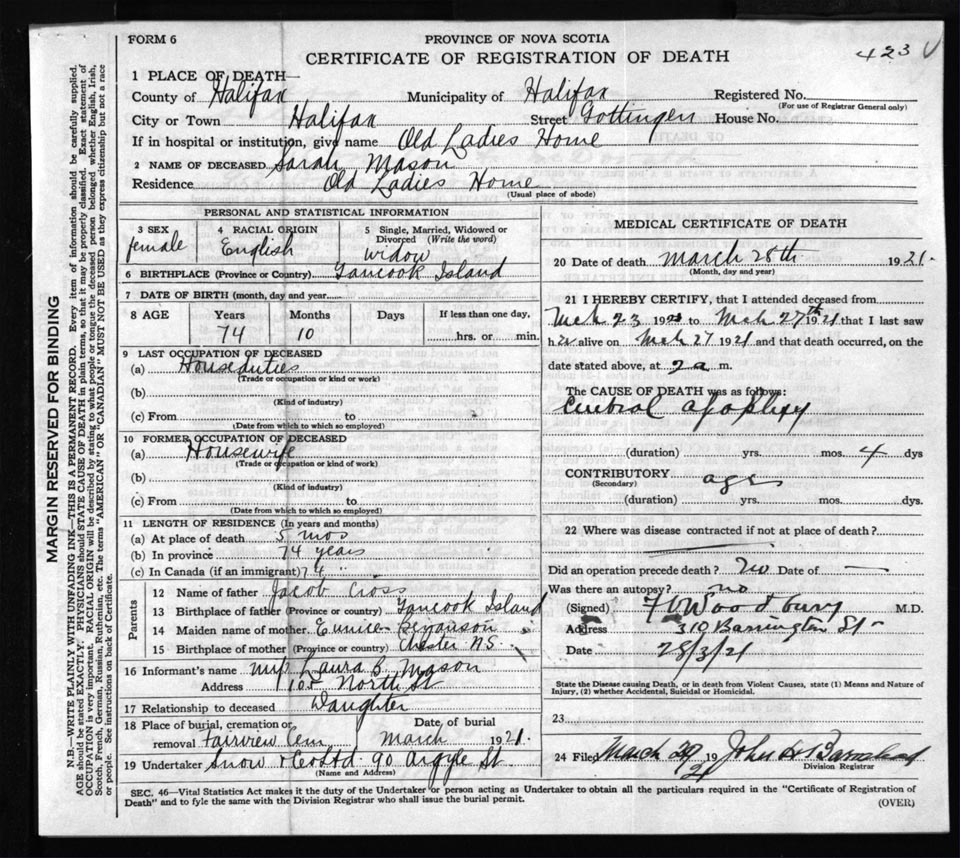 FORM 6
PROVINCE OF NOVA SCOTIA
CERTIFICATE OF REGISTRATION OF DEATH
423
1 PLACE OF DEATH—
County of Halifax Municipality of Halifax Registered No.
(For use of Registrar General only)
City or Town Halifax Street Gottingen House No.
If in hospital or institution, give name Old Ladies Home
2 NAME OF DECEASED Sarah Mason
Residence Old Ladies Home
(Usual place of abode)
PERSONAL AND STATISTICAL INFORMATION
3 SEX female
4 RACIAL ORIGIN English
5 Single, Married, Widowed or Divorced (Write the word) widow
6 BIRTHPLACE (Province or Country) Tancook Island
7 DATE OF BIRTH (month, day and year)
8 AGE Years Months Days If less than one day,
74 10 hrs. or min.
9 LAST OCCUPATION OF DECEASED
(a) Houseduties
(Trade or occupation or kind or work)
(b)
(Kind of industry)
(c) From to
(Date from which to which so employed)
10 FORMER OCCUPATION OF DECEASED
(a) Housewife
(Trade or occupation or kind of work)
(b)
(Kind of industry)
(c) From to
(Date from which to which so employed)
11 LENGTH OF RESIDENCE (In years and months)
(a) At place of death 5 mos
(b) In province 74 years
(c) In Canada (if an immigrant) 74
Parents
12 Name of father Jacob Cross
13 Birthplace of father (Province or country) Tancook Island
14 Maiden name of mother Eunice Bevanson
15 Birthplace of mother (Province or country) Chester NS
16 Informant's name Laura B. Mason
Address 105 North St
17 Relationship to deceased Daughter
18 Place of burial, cremation or removal Fairview Cem Date of burial March 1921.
19 Undertaker Snow & Co Ltd. 90 Argyle St.
(Name and Address)
MEDICAL CERTIFICATE OF DEATH
20 Date of death March 28th 1921.
(Month, day and year)
21 I HEREBY CERTIFY, that I attended deceased from
Mch 23 19 to Mch 27th 1921 that I last saw
her alive on Mch 27 1921 and that death occurred, on the
date stated above, at 2 a m.
The CAUSE OF DEATH was as follows:
apoplexy
(duration) yrs. mos. 4 dys
CONTRIBUTORY age
(Secondary)
(duration) yrs. mos. dys.
22 Where was disease contracted if not at place of death?
Did an operation precede death? No Date of —
Was there an autopsy? no
(Signed) Woodbury M.D.
Address 310 Barrington St-
Date 28/3/21
State the Disease causing Death, or in death from Violent Causes, state (1) Means and Nature of
Injury, (2) whether Accidental, Suicidal or Homicidal.
23
24 Filed March 29 1921 John H Barnstead
Division Registrar
SEC. 46—Vital Statistics Act makes it the duty of the Undertaker or person acting as Undertaker to obtain all the particulars required in the "Certificate of Registration of
Death" and to fyle the same with the Division Registrar who shall issue the burial permit.
(OVER)
MARGIN RESERVED FOR BINDING
N.B.—WRITE PLAINLY WITH UNFADING INK—THIS IS A PERMANENT RECORD. Every item of information should be carefully supplied.
AGE should be stated EXACTLY. PHYSICIANS should STATE CAUSE OF DEATH in plain terms, so that it may be properly classified. Exact statement of
OCCUPATION is very important. RACIAL ORIGIN will be described by stating to what people or tongue the deceased person belonged whether English, Irish,
Scotch, French, German, Russian, Ruthenian, etc. The terms "AMERICAN" OR "CANADIAN" MUST NOT BE USED as they express citizenship but not a race
or people. See instructions on back of Certificate.